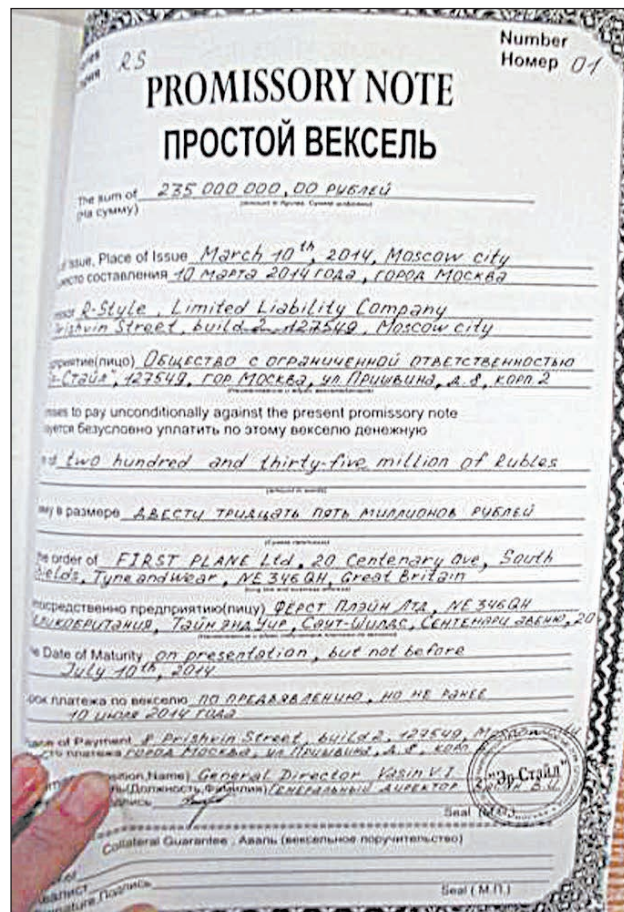 RS
Number
Номер 01
PROMISSORY NOTE
ПРОСТОЙ ВЕКСЕЛЬ
The sum of 235 000 000,00 РУБЛЕЙ
(На сумму)
Issue, Place of Issue March 10th, 2014, Moscow city
место составления 10 МАРТА 2014 ГОДА, ГОРОД МОСКВА
R-Style, Limited Liability Company
Prishvin Street, build 2 127549, Moscow city
приятие(лицо) ОБЩЕСТВО С ОГРАНИЧЕННОЙ ОТВЕТСТВЕННОСТЬЮ
Р-СТАЙЛ", 127549, ГОР. МОСКВА, УЛ. ПРИШВИНА, Д. 8, КОРП. 2
mises to pay unconditionally against the present promissory note
уется безусловно уплатить по этому векселю денежную
two hundred and thirty-five million of Rubles
(amount in words)
му в размере ДВЕСТИ ТРИДЦАТЬ ПЯТЬ МИЛЛИОНОВ РУБЛЕЙ
(Сумма прописью)
the order of FIRST PLANE Ltd, 20 Centenary Ave, South
ields, Tyne and Wear, NE346QH, Great Britain
посредственно предприятию(лицу) ФЁРСТ ПЛЭЙН ЛТД, NE346QH
ЛИКОБРИТАНИЯ, ТАЙН ЭНД УИР, САУТ-ШИЛДС, СЕНТЕНАРИ АВЕНЮ, 20
e Date of Maturity on presentation, but not before
July 10th, 2014
рок платежа по векселю ПО ПРЕДЪЯВЛЕНИЮ, НО НЕ РАНЕЕ
10 ИЮЛЯ 2014 ГОДА
lace of Payment 8 Prishvin Street, build 2, 127549, Moscow city
сто платежа ГОРОД МОСКВА, УЛ. ПРИШВИНА, Д. 8, КОРП.
osition,Name) General Director Vasin V.I.
ль(Должность,Фамилия) ГЕНЕРАЛЬНЫЙ ДИРЕКТОР ВАСИН В.И.
"Эр-Стайл"
одпись
Seal (М.П.)
Collateral Guarantee . Аваль (вексельное поручительство)
of
валист
ignature.Подпись
Seal ( М.П.)